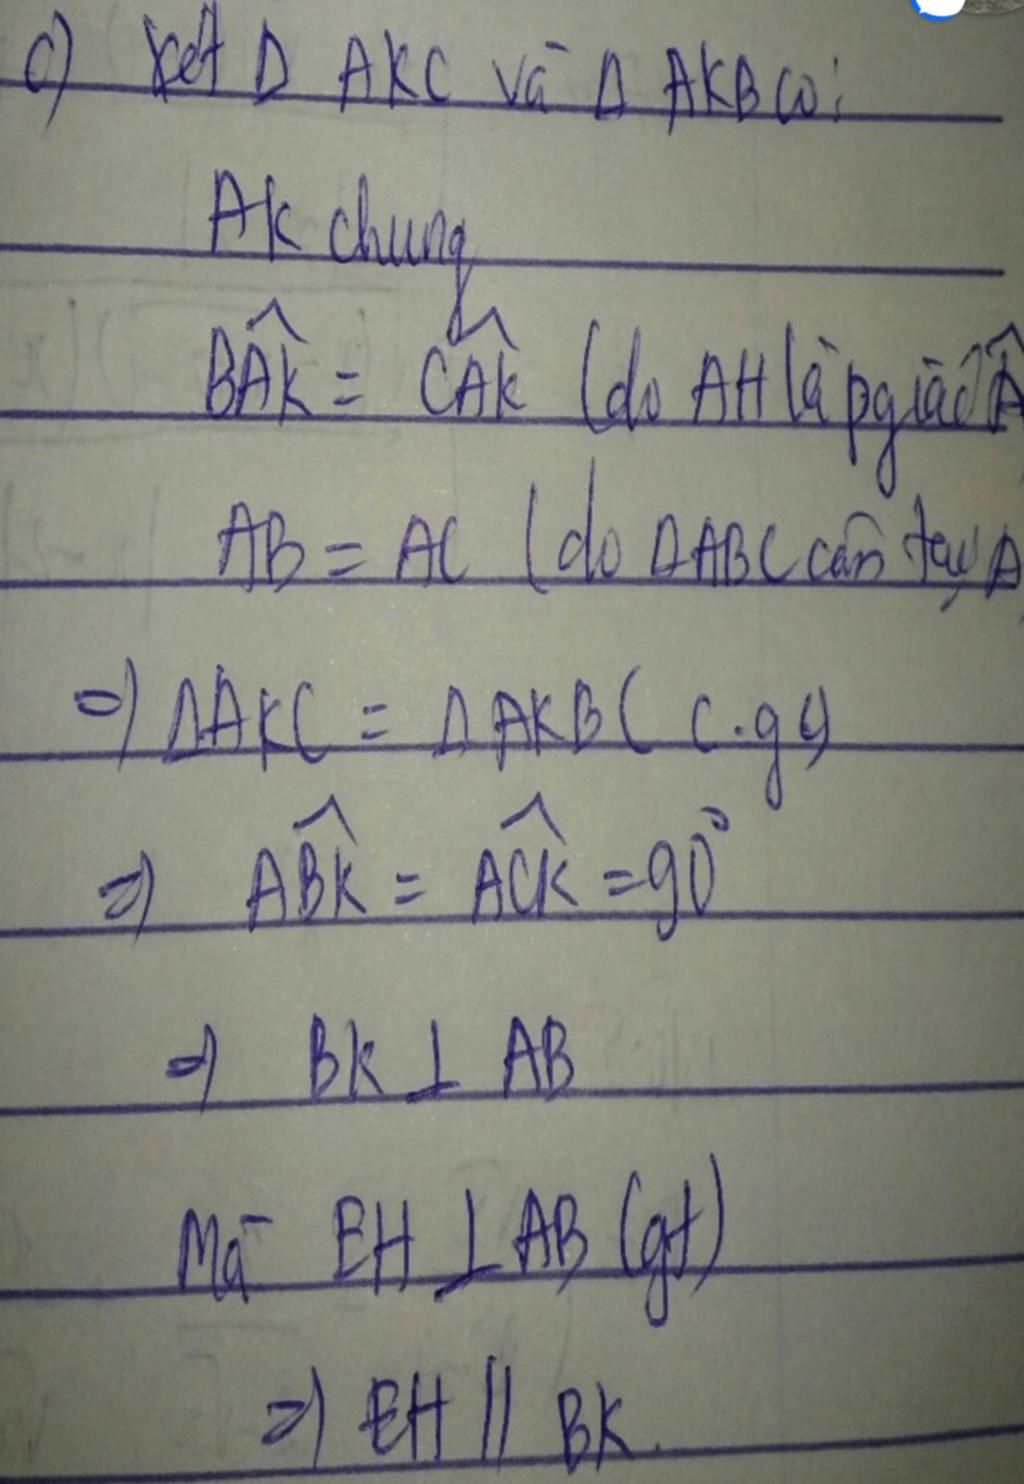 c) Xét Δ AKC và Δ AKB có:
AK chung
BÂK = CÂK (do AH là pgiác Â
AB = AC (do ΔABC cân tại A
=) ΔAKC = ΔAKB ( c.g.c)
=) AB̂K = AĈK = 90°
=) BK ⊥ AB
Mà EH ⊥ AB (gt)
=) EH // BK.